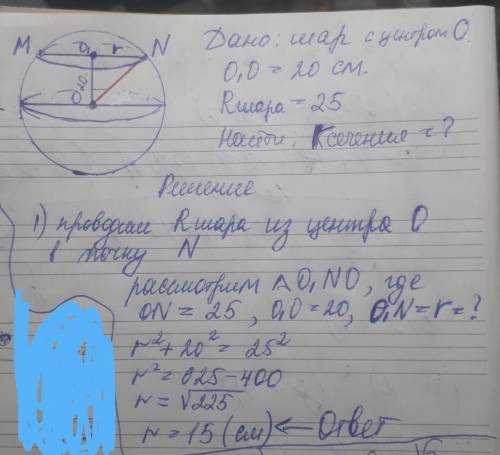 M O₁ r N
20
O
Дано: шар с центром O.
O₁O = 20 см.
Rшара = 25
Найти: rсечения = ?
Решение
1) проводим Rшара из центра O
в точку N
рассмотрим △O₁NO, где
ON = 25, O₁O = 20, O₁N = r = ?
r² + 20² = 25²
r² = 625 - 400
r = √225
r = 15 (см) ← Ответ